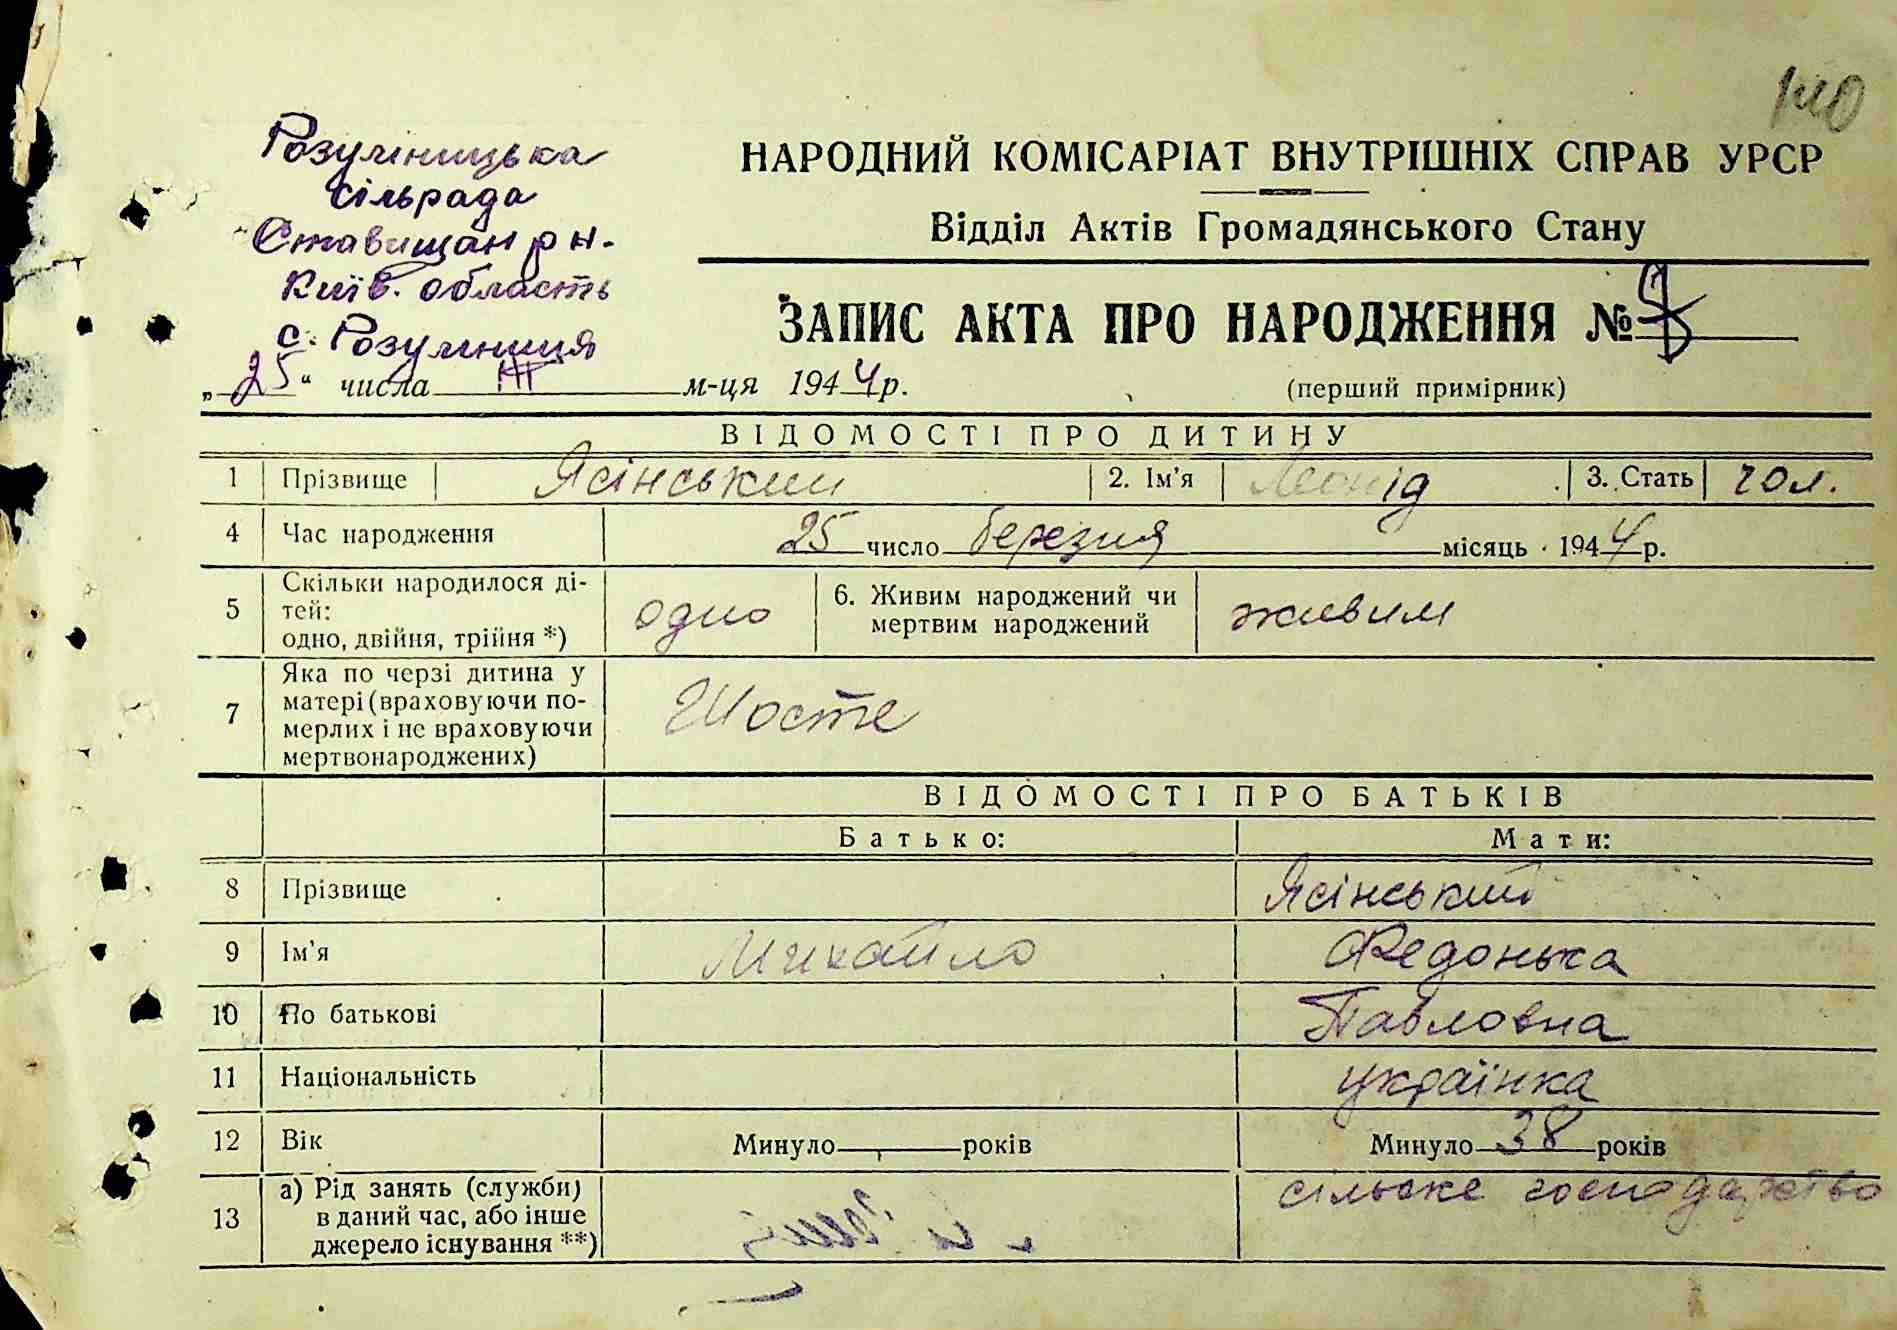 140
Розумницька
сільрада
Ставищан р н.
Київ. область
с. Розумниця
НАРОДНИЙ КОМІСАРІАТ ВНУТРІШНІХ СПРАВ УРСР
Відділ Актів Громадянського Стану
ЗАПИС АКТА ПРО НАРОДЖЕННЯ №
„25“ числа III м-ця 1944 р.
(перший примірник)
ВІДОМОСТІ ПРО ДИТИНУ
1 Прізвище Ясінський 2. Ім'я Леонід 3. Стать чол.
4 Час народження 25 число березня місяць 1944 р.
5 Скільки народилося ді-
тей:
одно, двійня, трійня *) одно
6. Живим народжений чи
мертвим народжений живим
7 Яка по черзі дитина у
матері (враховуючи по-
мерлих і не враховуючи
мертвонароджених) Шосте
ВІДОМОСТІ ПРО БАТЬКІВ
Батько: Мати:
8 Прізвище Ясінський
9 Ім'я Михайло Федонька
10 По батькові Павловна
11 Національність українка
12 Вік Минуло років Минуло 38 років
13 а) Рід занять (служби)
в даний час, або інше
джерело існування **) сільське господарство